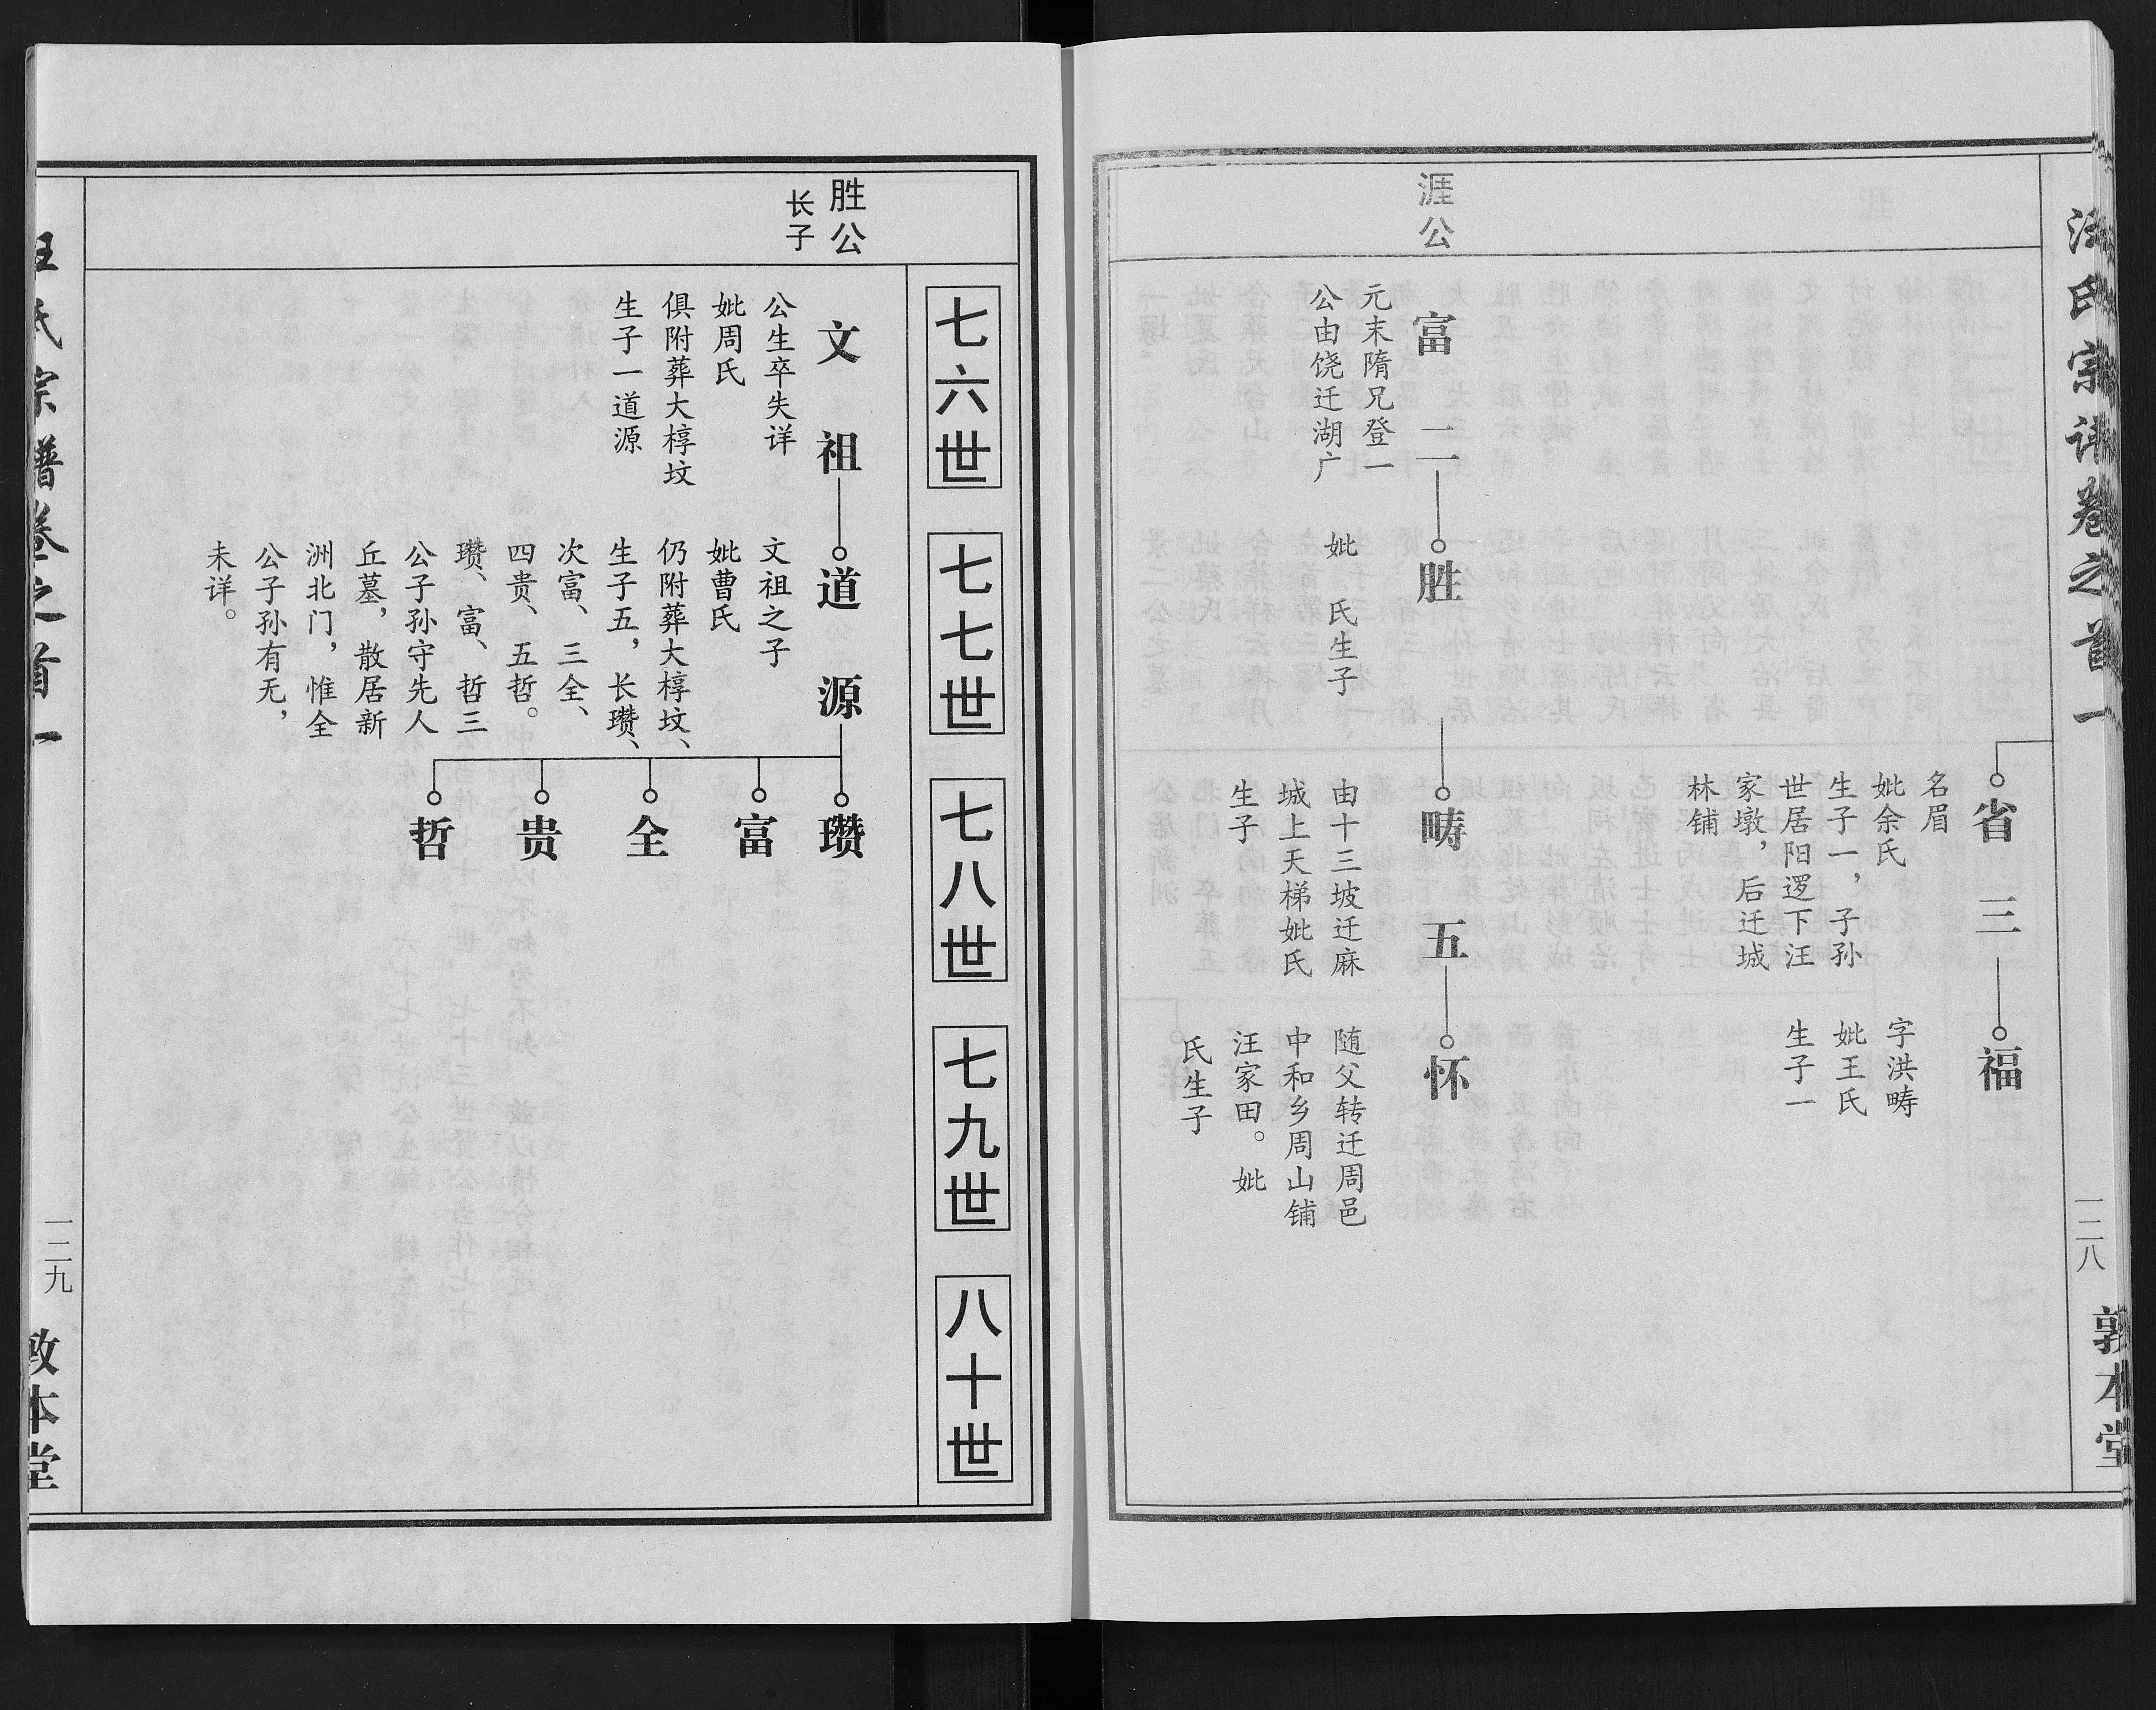 汪氏宗谱卷之首一
一二八
敦本堂
省三
名眉
妣余氏
生子一，子孙
世居阳逻下汪
家墩，后迁城
林铺
福
字洪畴
妣王氏
生子一
涯公
富二
元末隋兄登一
公由饶迁湖广
胜
妣 氏生子
畴五
由十三坡迁麻
城上天梯妣氏
生子
怀
随父转迁周邑
中和乡周山铺
汪家田。妣
氏生子
七六世
七七世
七八世
七九世
八十世
胜公
长子
文祖
公生卒失详
妣周氏
俱附葬大椁坟
生子一道源
道源
文祖之子
妣曹氏
仍附葬大椁坟、
生子五，长瓒、
次富、三全、
四贵、五哲。
瓒、富、哲三
公子孙守先人
丘墓，散居新
洲北门，惟全
公子孙有无，
未详。
瓒
富
全
贵
哲
汪氏宗谱卷之首一
一二九
敦本堂